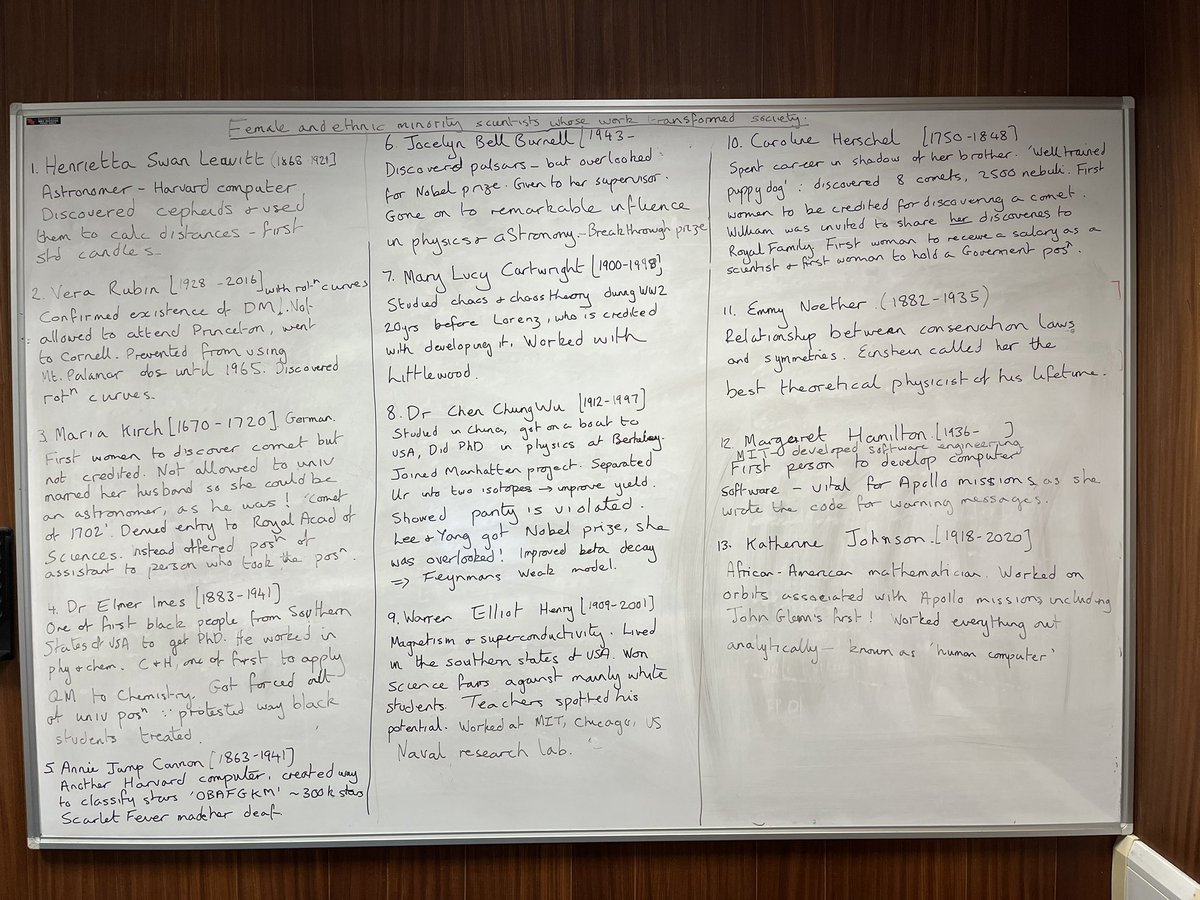 Female and ethnic minority scientists whose work transformed society.
1. Henrietta Swan Leavitt (1868-1921]
Astronomer - Harvard computer
Discovered cepheids & used
them to calc distances - first
std candles.
2. Vera Rubin [1928 - 2016] with rotⁿ curves
Confirmed existence of DM!. Not
allowed to attend Princeton, went
to Cornell. Prevented from using
Mt. Palamar obs until 1965. Discovered
rotⁿ curves.
3. Maria Kirch [1670 - 1720] German.
First women to discover comet but
not credited. Not allowed to univ
married her husband so she could be
an astronomer, as he was! 'Comet
of 1702'. Denied entry to Royal Acad of
Sciences. Instead offered posⁿ of
assistant to person who took the posⁿ.
4. Dr Elmer Imes [1883-1941]
One of first black people from Southern
States of USA to get PhD. He worked in
phy & chem. C & H, one of first to apply
QM to Chemistry. Got forced out
of univ posⁿ ∵ protested way black
students treated.
5. Annie Jump Cannon [1863-1941]
Another Harvard computer, created way
to classify stars 'OBAFGKM' ~300k stars
Scarlet Fever made her deaf.
6. Jocelyn Bell Burnell [1943-
Discovered pulsars - but overlooked
for Nobel prize. Given to her supervisor.
Gone on to remarkable influence
in physics & astronomy. - Breakthrough prize
7. Mary Lucy Cartwright [1900-1998]
Studied chaos & chaos theory during WW2
20yrs before Lorenz, who is credited
with developing it. Worked with
Littlewood.
8. Dr Chen Chung Wu [1912-1997]
Studied in China, got on a boat to
USA, Did PhD in physics at Berkeley.
Joined Manhatten project. Separated
Ur into two isotopes → improve yield.
Showed parity is violated.
Lee & Yang got Nobel prize, she
was overlooked! Improved beta decay
=> Feynmans Weak model.
9. Warren Elliot Henry [1909-2001]
Magnetism & superconductivity. Lived
in the southern states of USA. Won
Science fairs against mainly white
students. Teachers spotted his
potential. Worked at MIT, Chicago, US
Naval research lab.
10. Caroline Herschel [1750-1848]
Spent career in shadow of her brother. 'Well trained
puppy dog': discovered 8 comets, 2500 nebuli. First
woman to be credited for discovering a comet.
William was invited to share her discoveries to
Royal Family. First woman to receive a salary as a
scientist & first woman to hold a Goverment posⁿ.
11. Emmy Noether (1882-1935)
Relationship between conservation laws
and symmetries. Einstein called her the
best theoretical physicist of his lifetime.
12 Margaret Hamilton. [1936- ]
MIT - developed software engineering
First person to develop computer
software - vital for Apollo missions, as she
wrote the code for warning messages.
13. Katherine Johnson. [1918-2020]
African-American mathematician. Worked on
orbits associated with Apollo missions, including
John Glenn's first! Worked everything out
analytically - known as 'human computer'